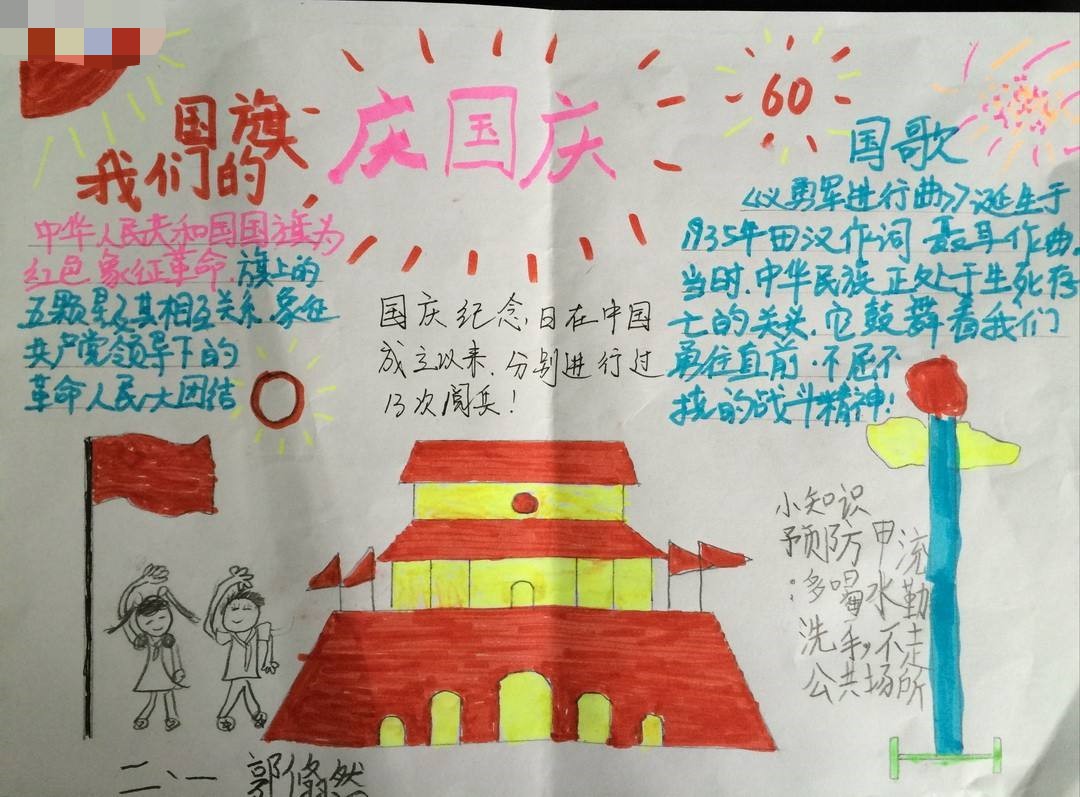 庆国庆
60
国旗
我们的
中华人民共和国国旗为
红色象征革命.旗上的
五颗星及其相互关系象征
共产党领导下的
革命人民大团结
国庆纪念,日在中国
成立以来.分别进行过
13次阅兵!
国歌
《义勇军进行曲》诞生于
1935年田汉作词 聂耳作曲.
当时.中华民族正处于生死存
亡的关头.它鼓舞着我们
勇往直前.不屈不
挠的战斗精神!
小知识
预防甲流
:多喝水勤
洗手,不走
公共场所
二、一 郭翛然